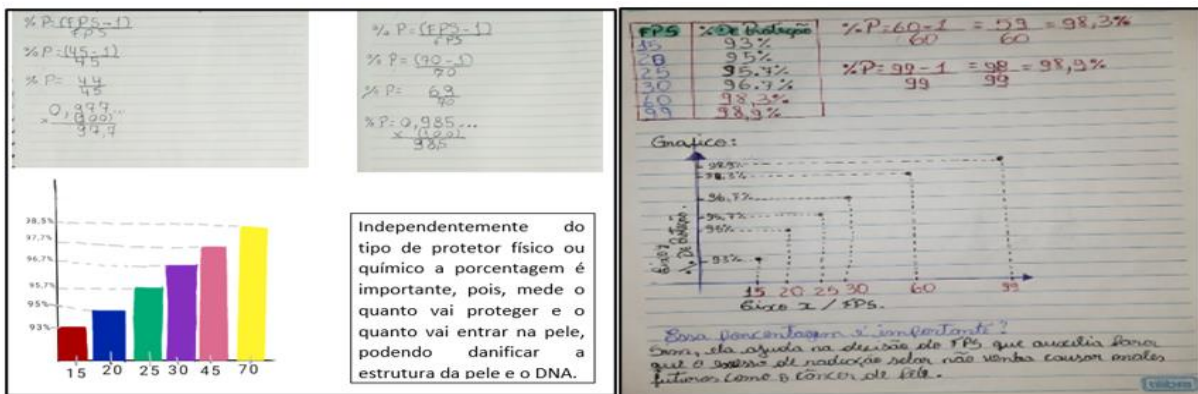 %P=(FPS-1)
FPS
%P=(45-1)
45
%P= 44
45
0,977...
x (100)
97,7
%P=(FPS-1)
FPS
%P=(70-1)
70
%P= 69
70
%P=0,985...
x (100)
98,5
98,5%
97,7%
96,7%
95,7%
95%
93%
15 20 25 30 45 70
Independentemente do
tipo de protetor físico ou
químico a porcentagem é
importante, pois, mede o
quanto vai proteger e o
quanto vai entrar na pele,
podendo danificar a
estrutura da pele e o DNA.
FPS %De Proteção
15 93%
20 95%
25 95.7%
30 96.7%
60 98,3%
99 98,9%
%P=60-1 = 59 = 98,3%
60 60
%P=99-1 = 98 = 98,9%
99 99
Grafico:
98,9%
98,3%
96,7%
95%
93%
Eixo y
% De Proteção
15 20 25 30 60 99
Eixo x / FPS.
Essa porcentagem é importante?
Sim, ela ajuda na decisão do FPS que auxilia para
que o excesso de radiação solar não venha causar males
futuros como o câncer de pele.